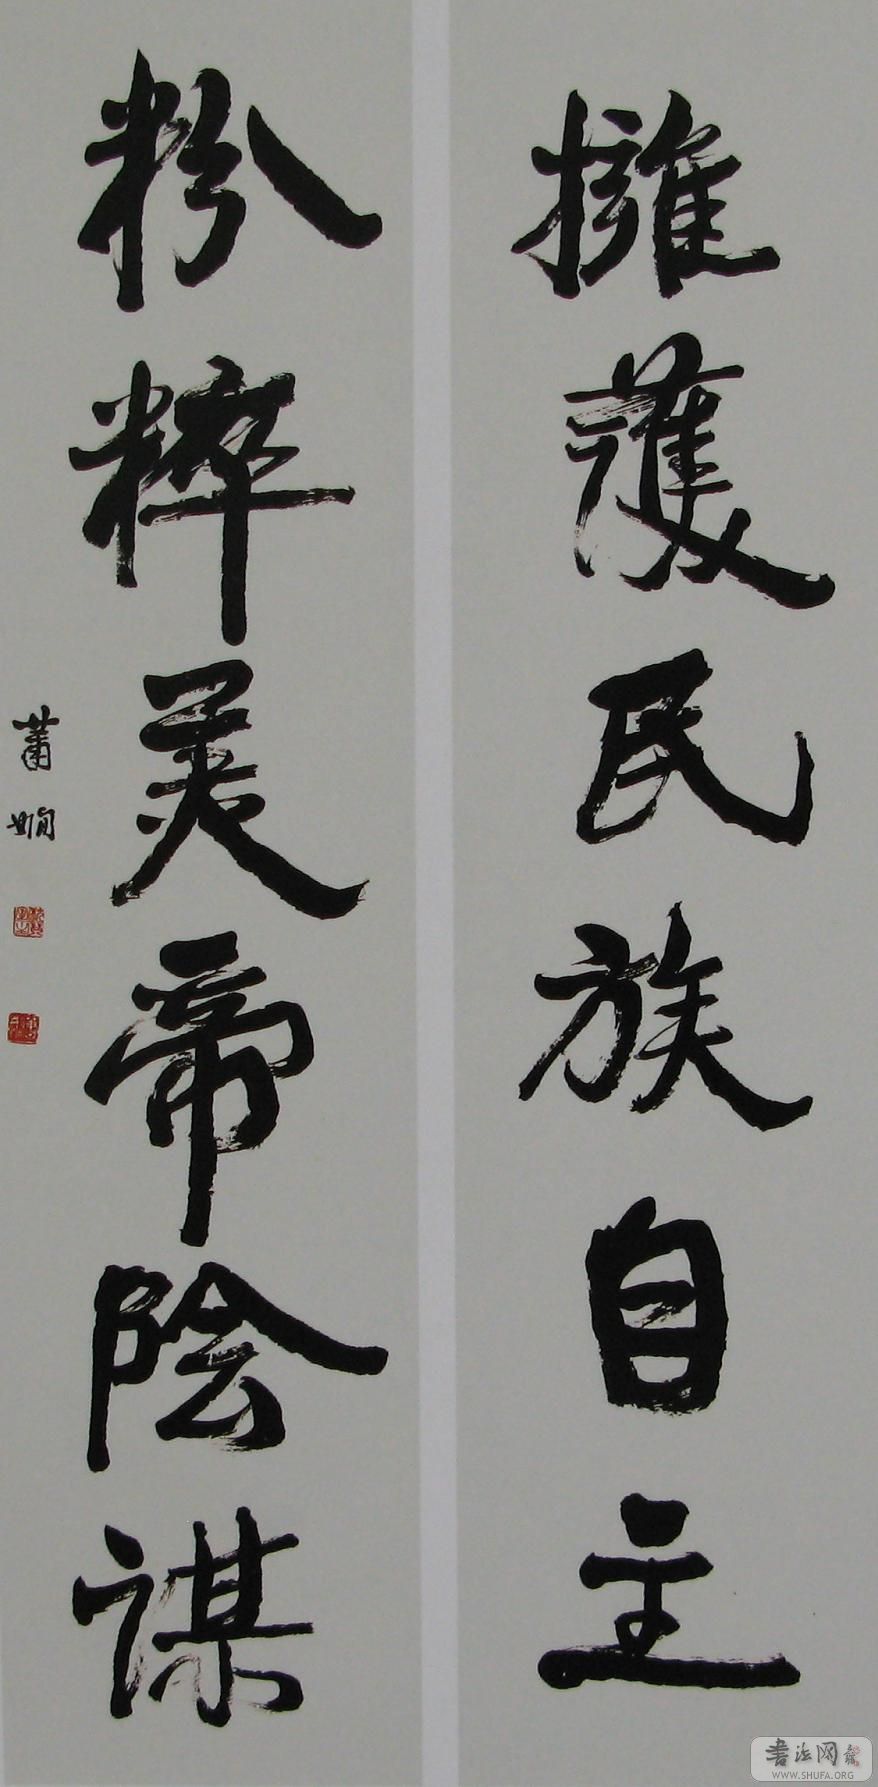 擁護民族自主
粉粹美帝陰謀
蕭嫻
書法网
WWW.SHUFA.ORG